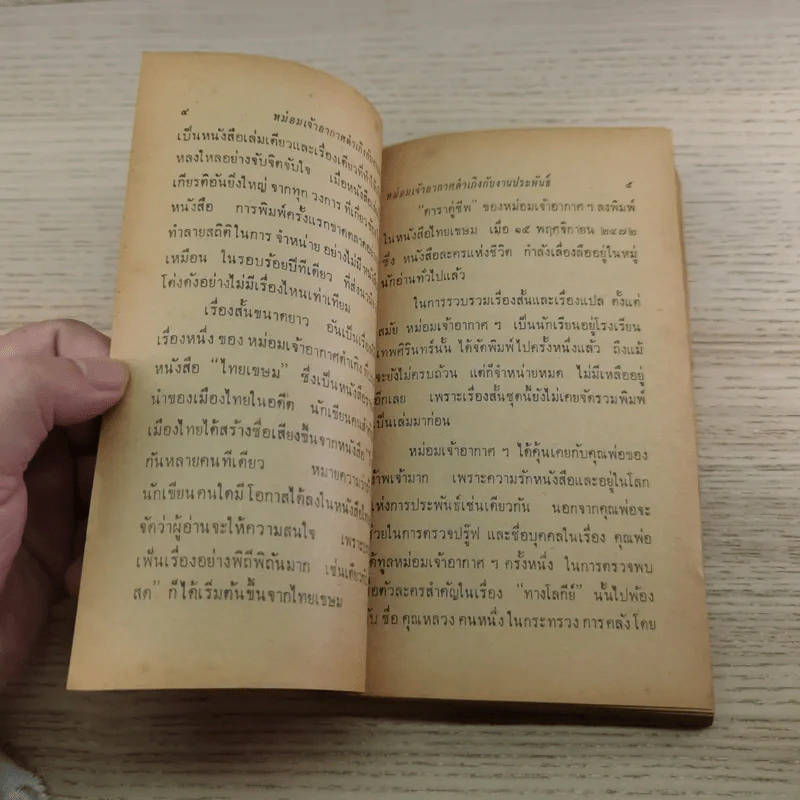 ๔
หม่อมเจ้าอากาศดำเกิงกับงาน
เป็นหนังสือเล่มเดียวและเรื่องเดียวที่ทำให้
หลงใหลอย่างจับจิตจับใจ เมื่อหนังสือ
เกียรติอันยิ่งใหญ่ จากทุก วงการ ที่เกี่ยวข้อง
หนังสือ การพิมพ์ครั้งแรกขาดตลาด
ทำลายสถิติในการ จำหน่าย อย่างไม่มี
เหมือน ในรอบร้อยปีทีเดียว ที่ส่ง
โด่งดังอย่างไม่มีเรื่องไหนเท่าเทียม
เรื่องสั้นขนาดยาว อันเป็นเรื่อง
เรื่องหนึ่ง ของ หม่อมเจ้าอากาศดำเกิง
หนังสือ “ไทยเขษม” ซึ่งเป็นหนังสือ
นำของเมืองไทยในอดีต นักเขียนคน
เมืองไทยได้สร้างชื่อเสียงขึ้นจากหนังสือ
กันหลายคนทีเดียว หมายความว่า
นักเขียนคนใดมีโอกาสได้ลงในหนังสือ
จัดว่าผู้อ่านจะให้ความสนใจ เพราะ
เฟ้นเรื่องอย่างพิถีพิถันมาก เช่นเดียว
สด” ก็ได้เริ่มต้นขึ้นจากไทยเขษม
หม่อมเจ้าอากาศดำเกิงกับงานประพันธ์ ๕
“ดาราคู่ชีพ” ของหม่อมเจ้าอากาศ ฯ ลงพิมพ์
ในหนังสือไทยเขษม เมื่อ ๑๕ พฤศจิกายน ๒๔๗๒
ซึ่ง หนังสือละครแห่งชีวิต กำลังเลื่องลืออยู่ในหมู่
นักอ่านทั่วไปแล้ว
ในการรวบรวมเรื่องสั้นและเรื่องแปล ตั้งแต่
สมัย หม่อมเจ้าอากาศ ฯ เป็นนักเรียนอยู่โรงเรียน
เทพศิรินทร์นั้น ได้จัดพิมพ์ไปครั้งหนึ่งแล้ว ถึงแม้
จะยังไม่ครบถ้วน แต่ก็จำหน่ายหมด ไม่มีเหลืออยู่
อีกเลย เพราะเรื่องสั้นชุดนี้ยังไม่เคยจัดรวมพิมพ์
เป็นเล่มมาก่อน
หม่อมเจ้าอากาศ ฯ ได้คุ้นเคยกับคุณพ่อของ
าพเจ้ามาก เพราะความรักหนังสือและอยู่ในโลก
แห่งการประพันธ์เช่นเดียวกัน นอกจากคุณพ่อจะ
ช่วยในการตรวจปรู๊ฟ และชื่อบุคคลในเรื่อง คุณพ่อ
ได้ทูลหม่อมเจ้าอากาศ ฯ ครั้งหนึ่ง ในการตรวจพบ
ชื่อตัวละครสำคัญในเรื่อง “ทางโลกีย์” นั้นไปพ้อง
กับ ชื่อ คุณหลวง คนหนึ่ง ในกระทรวง การ คลัง โดย